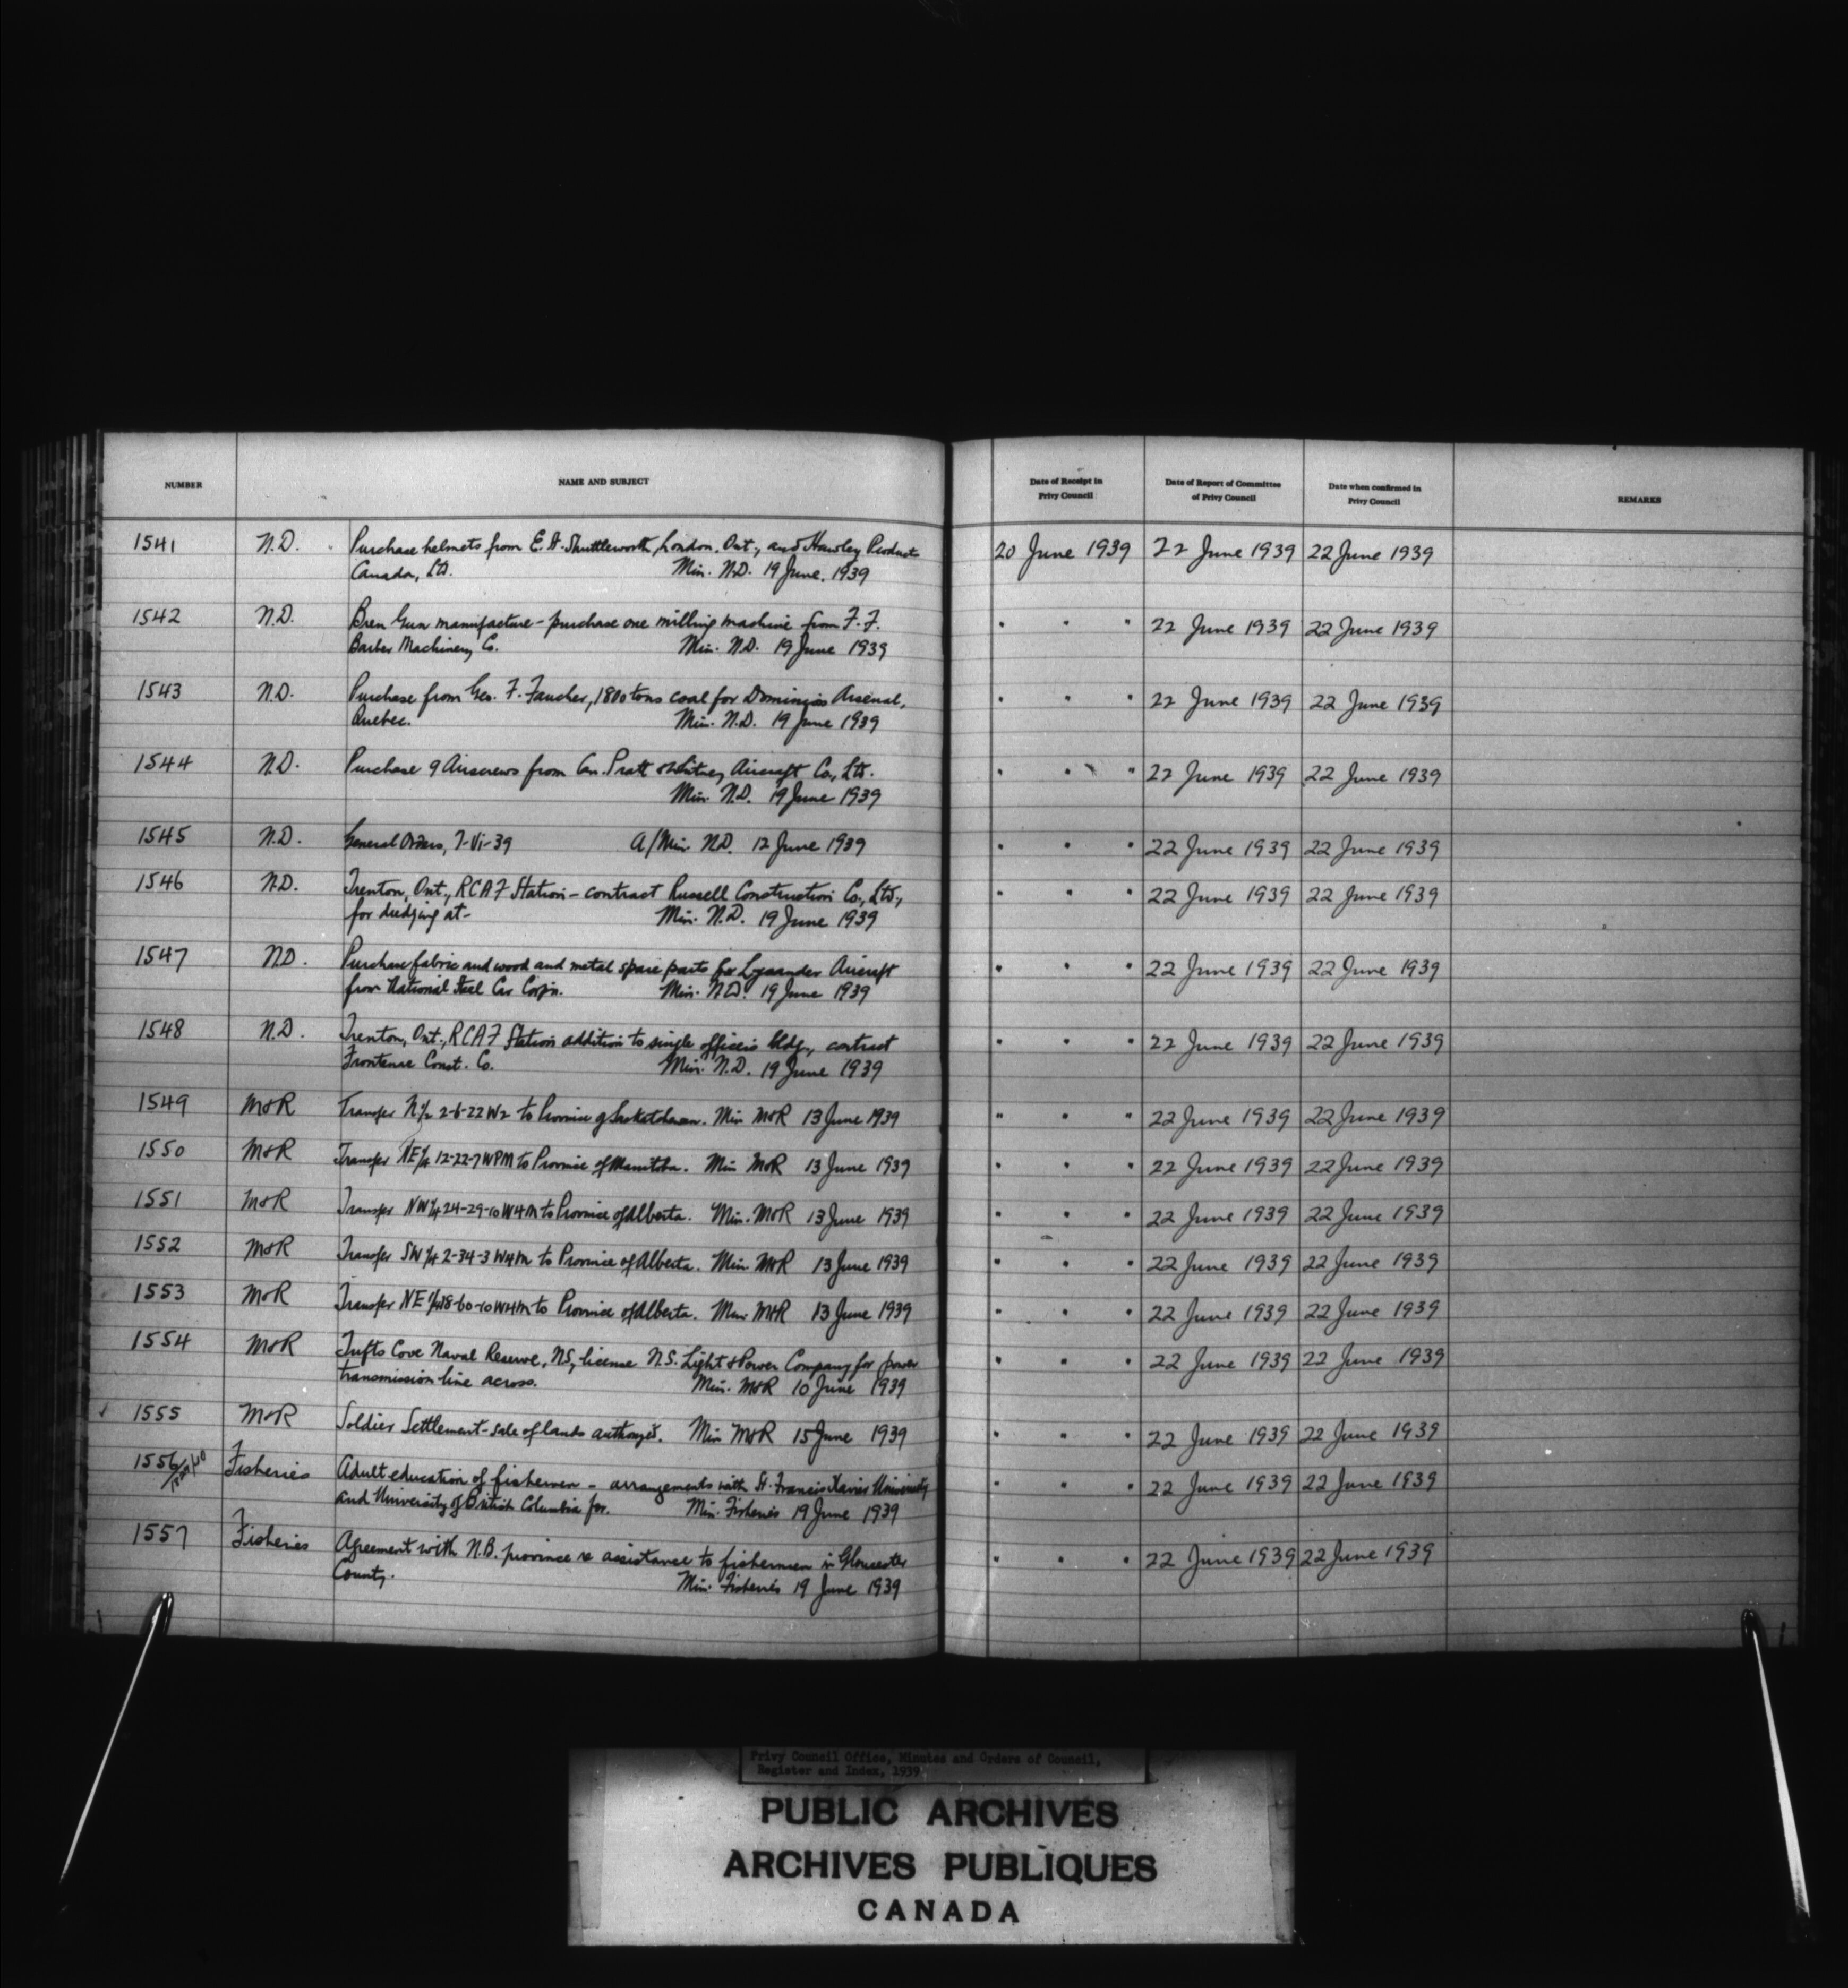 NUMBER NAME AND SUBJECT Date of Receipt in Privy Council Date of Report of Committee of Privy Council Date when confirmed in Privy Council REMARKS
1541 N.D. Purchase helmets from E. A. Shuttleworth, London, Ont., and Hawley Products 20 June 1939 22 June 1939 22 June 1939
Canada, Ltd. Min. N.D. 19 June, 1939
1542 N.D. Bren Gun manufacture - purchase one milling machine from F. F. " " " 22 June 1939 22 June 1939
Barber Machinery Co. Min. N.D. 19 June 1939
1543 N.D. Purchase from Geo. F. Faucher, 1800 tons coal for Dominion Arsenal, " " " 22 June 1939 22 June 1939
Quebec. Min. N.D. 19 June 1939
1544 N.D. Purchase 9 Airscrews from Can. Pratt & Whitney Aircraft Co., Ltd. " " " 22 June 1939 22 June 1939
Min. N.D. 19 June 1939
1545 N.D. General Orders, 7-VI-39 A/Min. N.D. 12 June 1939 " " " 22 June 1939 22 June 1939
1546 N.D. Trenton, Ont., RCAF Station - contract Russell Construction Co., Ltd., " " " 22 June 1939 22 June 1939
for dredging at - Min. N.D. 19 June 1939
1547 N.D. Purchase fabric and wood and metal spare parts for Lysander Aircraft " " " 22 June 1939 22 June 1939
from National Steel Car Corp'n. Min. N.D. 19 June 1939
1548 N.D. Trenton, Ont., RCAF Station addition to single officers bldg., contract " " " 22 June 1939 22 June 1939
Frontenac Const. Co. Min. N.D. 19 June 1939
1549 M&R Transfer N½ 2-6-22 W2 to Province of Saskatchewan. Min M&R 13 June 1939 " " " 22 June 1939 22 June 1939
1550 M&R Transfer NE¼ 12-22-7 WPM to Province of Manitoba. Min M&R 13 June 1939 " " " 22 June 1939 22 June 1939
1551 M&R Transfer NW¼ 24-29-10 W4M to Province of Alberta. Min. M&R 13 June 1939 " " " 22 June 1939 22 June 1939
1552 M&R Transfer SW¼ 2-34-3 W4M to Province of Alberta. Min. M&R 13 June 1939 " " " 22 June 1939 22 June 1939
1553 M&R Transfer NE¼ 18-60-10 W4M to Province of Alberta. Min M&R 13 June 1939 " " " 22 June 1939 22 June 1939
1554 M&R Tufts Cove Naval Reserve, NS, license N.S. Light & Power Company for power " " " 22 June 1939 22 June 1939
transmission line across. Min. M&R 10 June 1939
1555 M&R Soldier Settlement - sale of lands authorized. Min M&R 15 June 1939 " " " 22 June 1939 22 June 1939
1556 Fisheries Adult education of fishermen - arrangements with St. Francis Xavier University " " " 22 June 1939 22 June 1939
and University of British Columbia for. Min. Fisheries 19 June 1939
1557 Fisheries Agreement with N.B. province re assistance to fishermen in Gloucester " " " 22 June 1939 22 June 1939
County. Min. Fisheries 19 June 1939
Privy Council Office, Minutes and Orders of Council,
Register and Index, 1939
PUBLIC ARCHIVES
ARCHIVES PUBLIQUES
CANADA